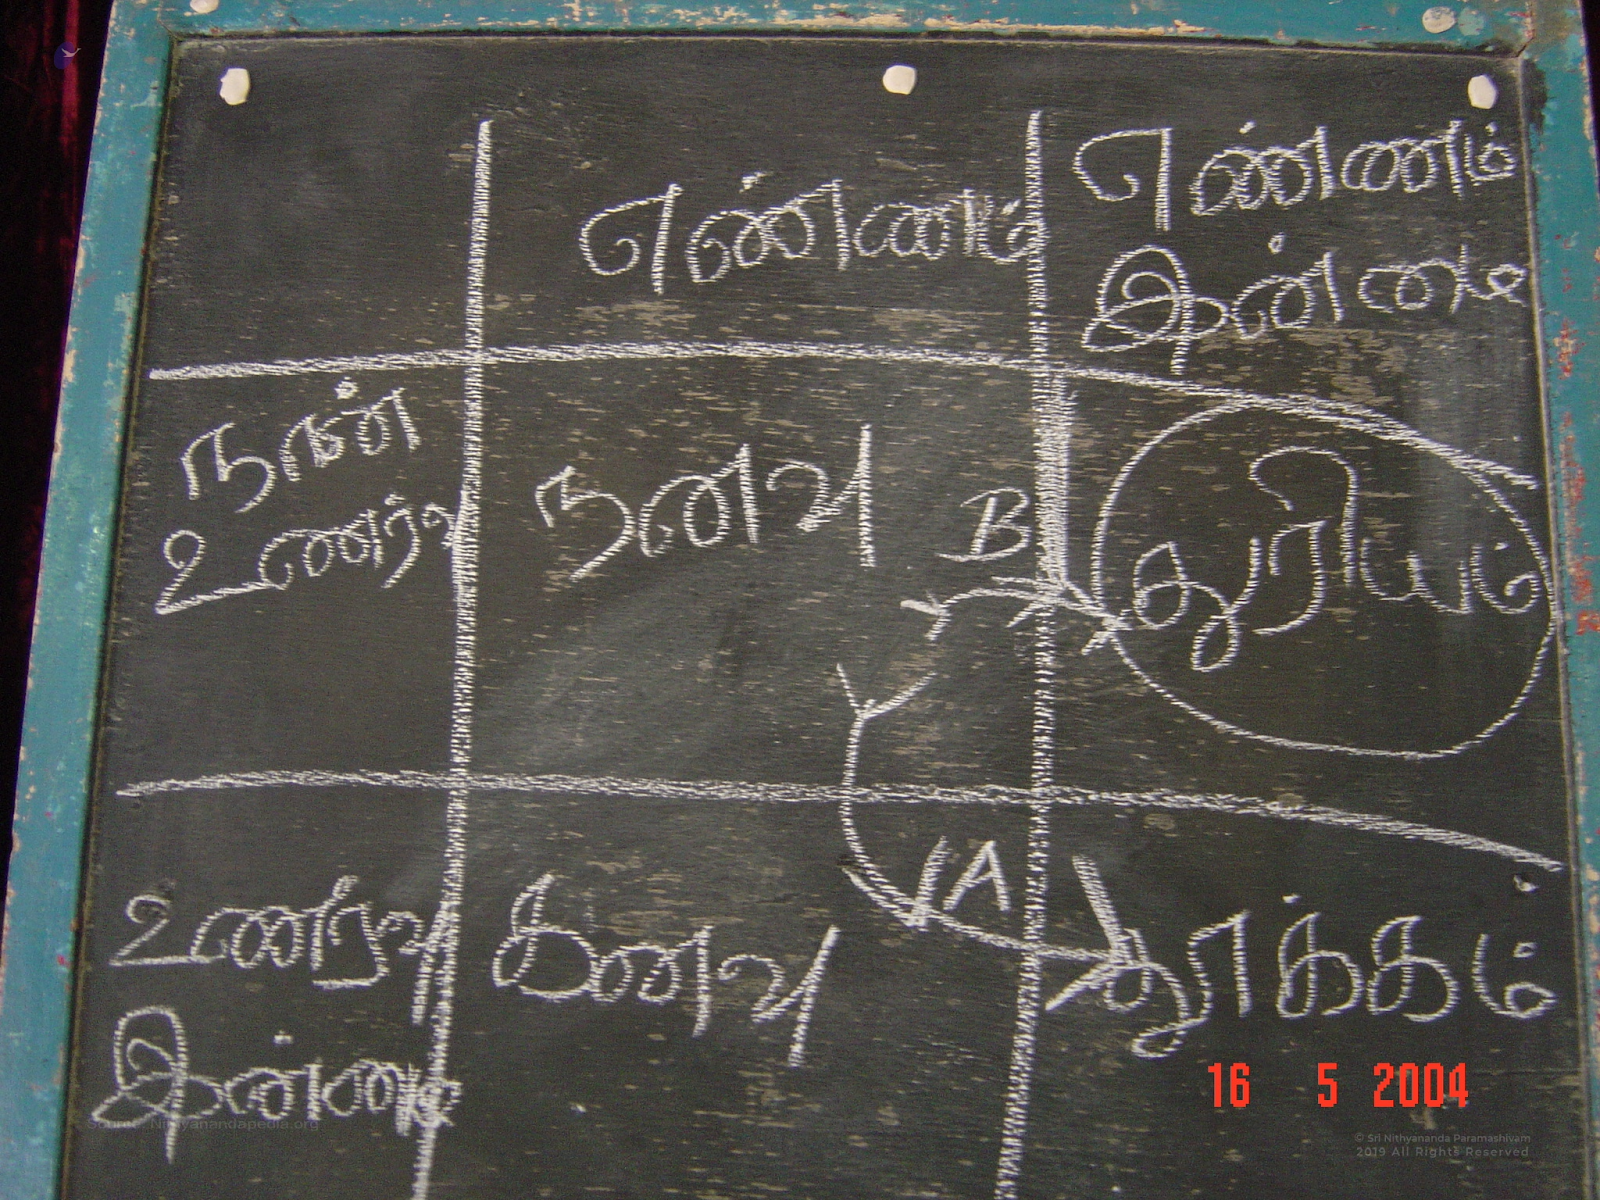 எண்ணம்
எண்ணம்
இன்மை
நான்
உணர்வு
நனவு
B
துரியம்
A
உணர்வு
இன்மை
கனவு
தூக்கம்
16 5 2004
Source: Nithyanandapedia.org
© Sri Nithyananda Paramashivam
2019 All Rights Reserved